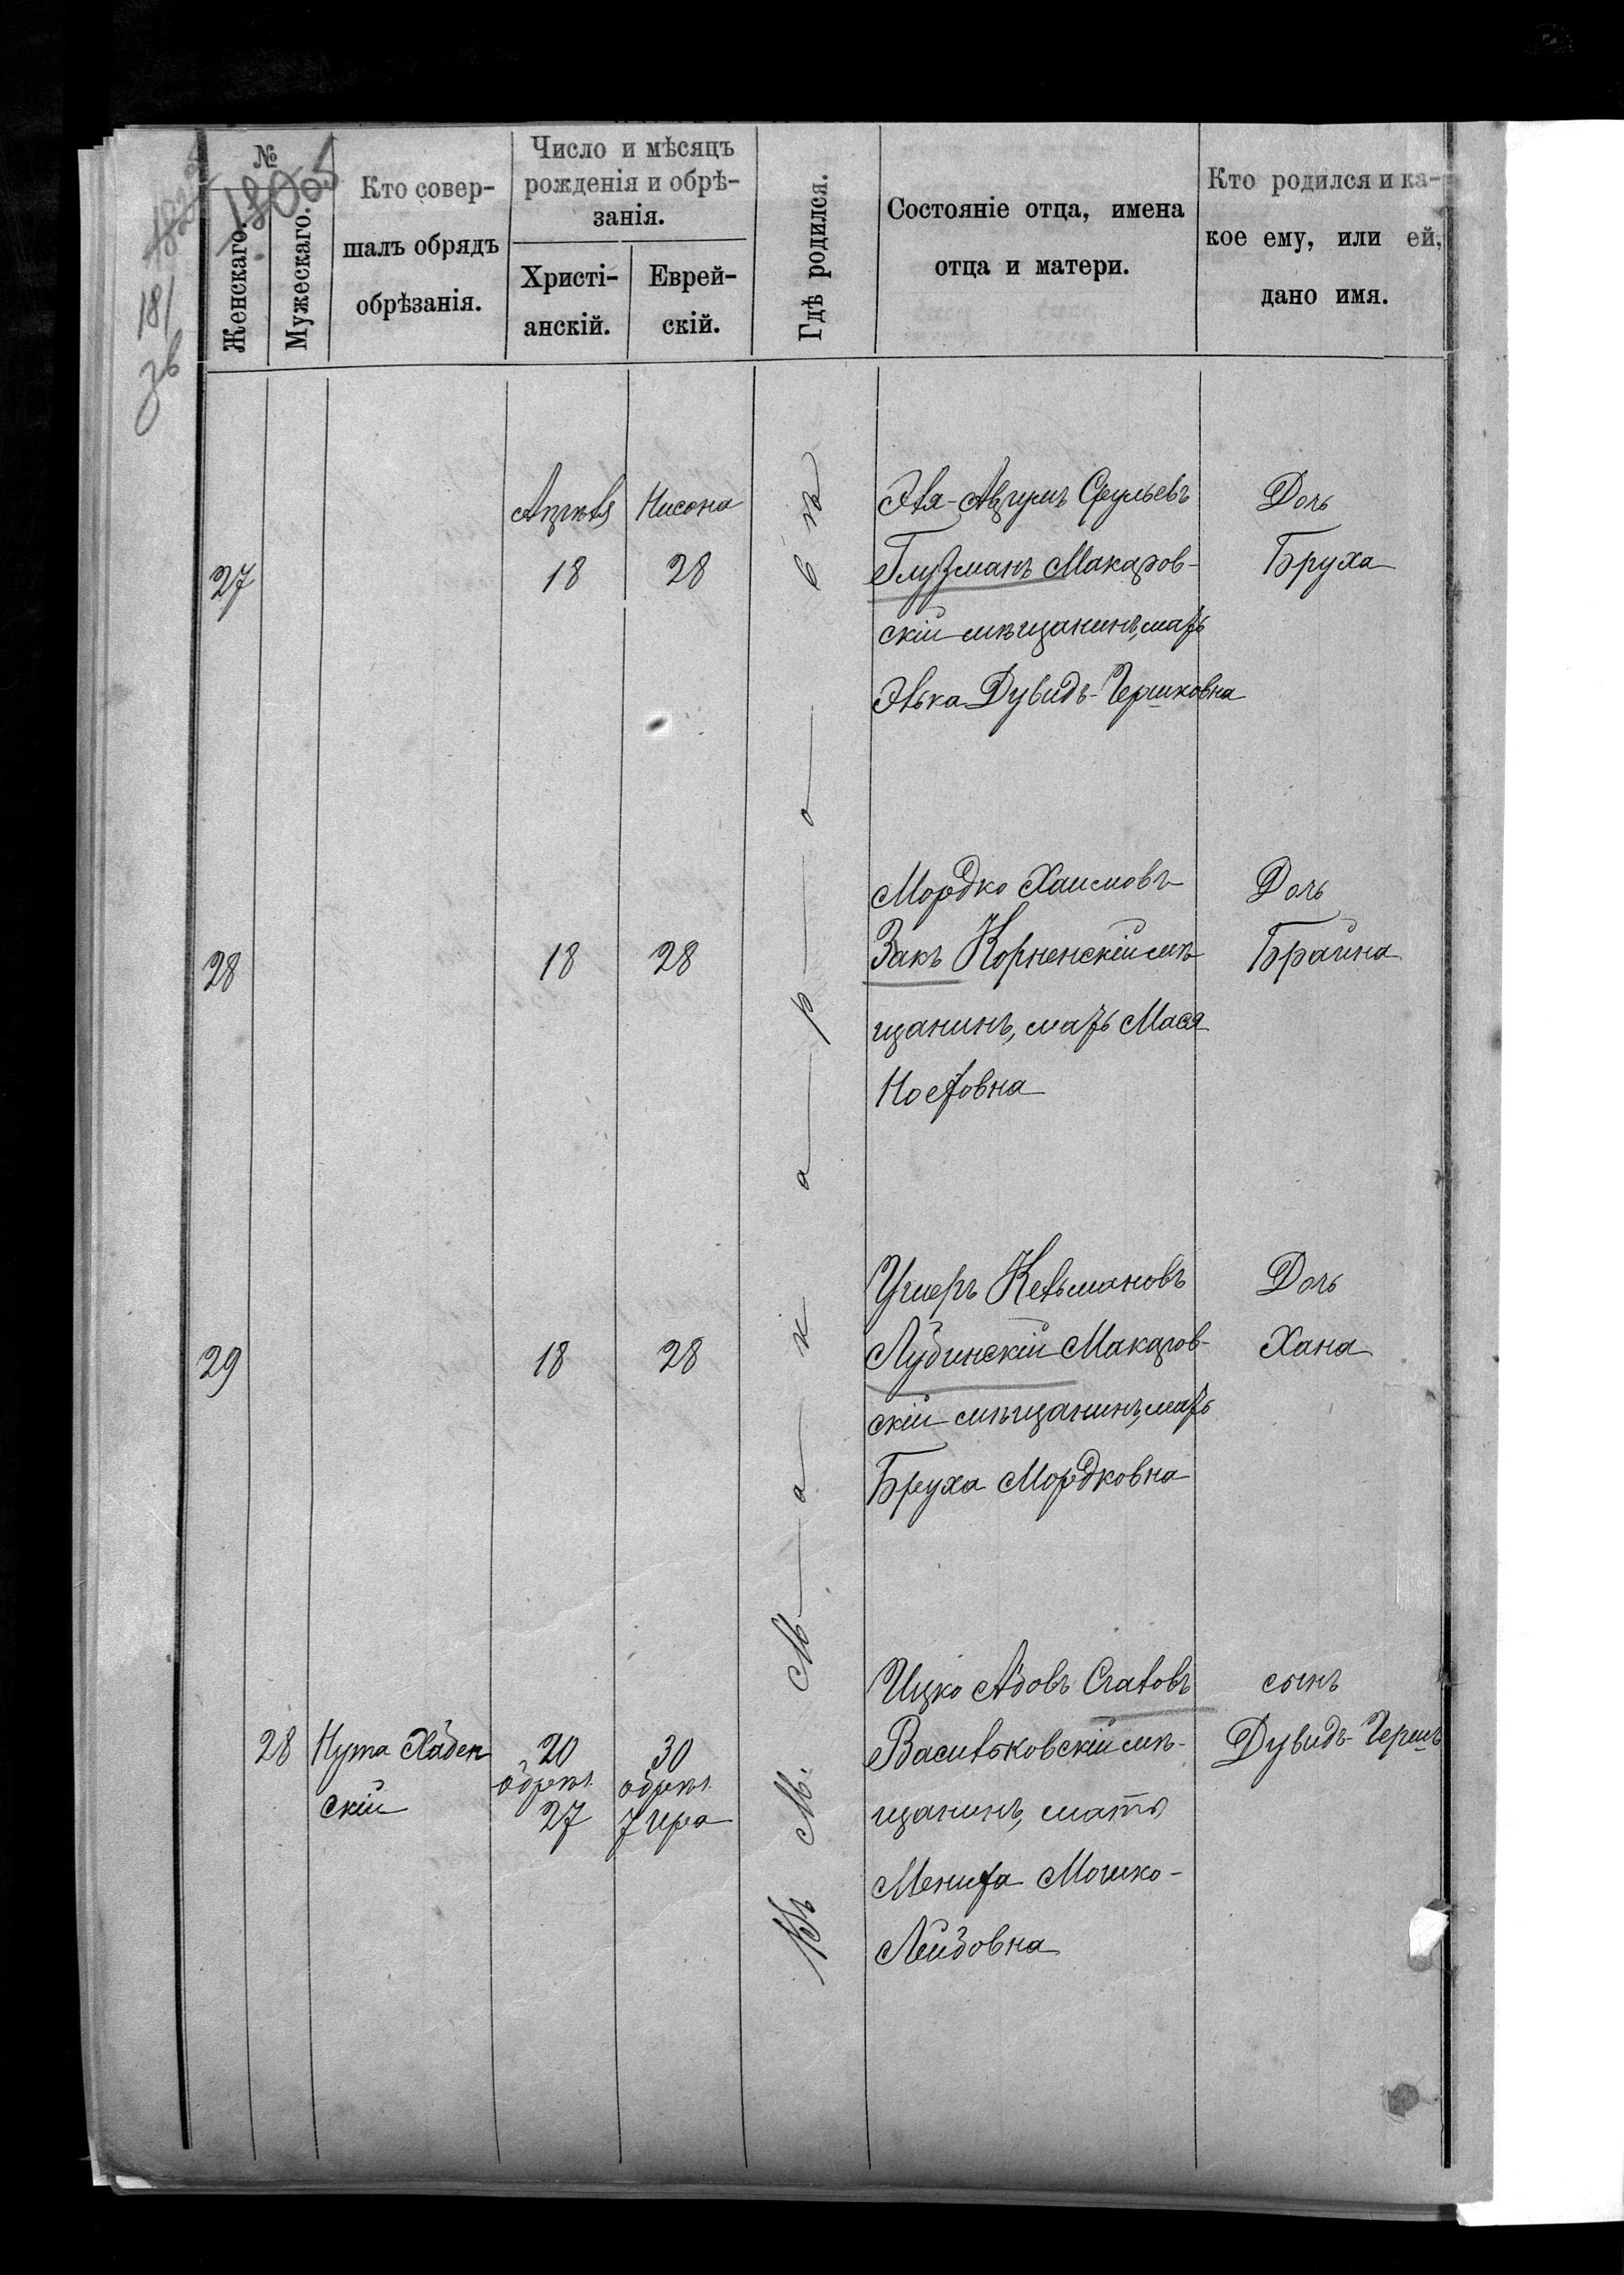 №
Женскаго.
Мужескаго.
Кто совер-
шалъ обрядъ
обрѣзанія.
Число и мѣсяцъ
рожденія и обрѣ-
занія.
Христі-
анскій.
Еврей-
скій.
Гдѣ родился.
Состояніе отца, имена
отца и матери.
Кто родился и ка-
кое ему, или ей,
дано имя.
181
зв
Въ М. Макаровѣ
27
Апрѣля
18
Нисона
28
Эля-Аврумъ Срульевъ
Глузманъ Макаров-
скій мѣщанинъ, мать
Элька Дувидъ-Гершковна
Дочь
Бруха
28
18
28
Мордко Хаимовъ
Закъ Корненскій мѣ-
щанинъ, мать Мася
Ностовна
Дочь
Брайна
29
18
28
Ушеръ Кельмановъ
Лубинскій Макаров-
скій мѣщанинъ, мать
Бруха Мордковна
Дочь
Хана
28
Нута Хабен
скій
20
обрѣз.
27
30
обрѣз.
7 Ира
Ицко Абовъ
Васильковскій мѣ-
щанинъ, мать
Менита Мошко-
Лейбовна
сынъ
Дувидъ-Гершъ